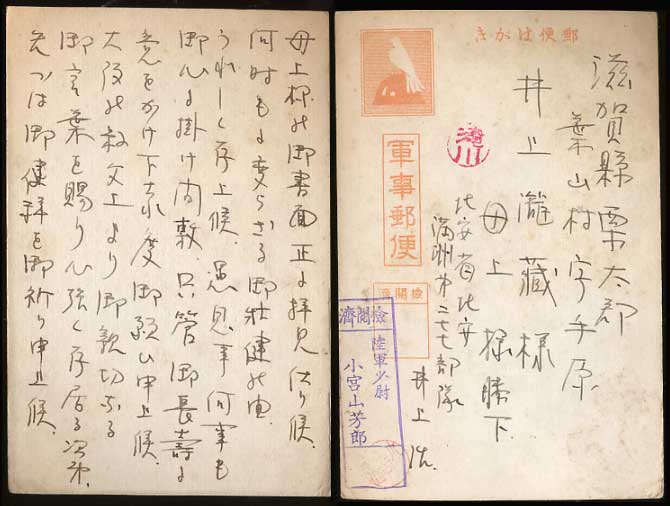 母上様の御書面正に拝見仕り候。
何時もに変らざる御壮健の由
うれしく存上候。愚息事何事も
御心に掛け間敷、只管御長寿に
意をかけ下され度御願ひ申上候。
大阪の叔父上より御親切なる
御言葉を賜り心強く存居る次第。
先づは御健祥を御祈り申上候。
郵便はがき
滋賀縣栗太郡
葉山村字手原
井上瀧藏様
母上様膝下
瀧川
軍事郵便
檢閲濟
北安省北安
滿洲第二七七部隊
井上
檢閲濟
陸軍少尉
小宮山芳郎